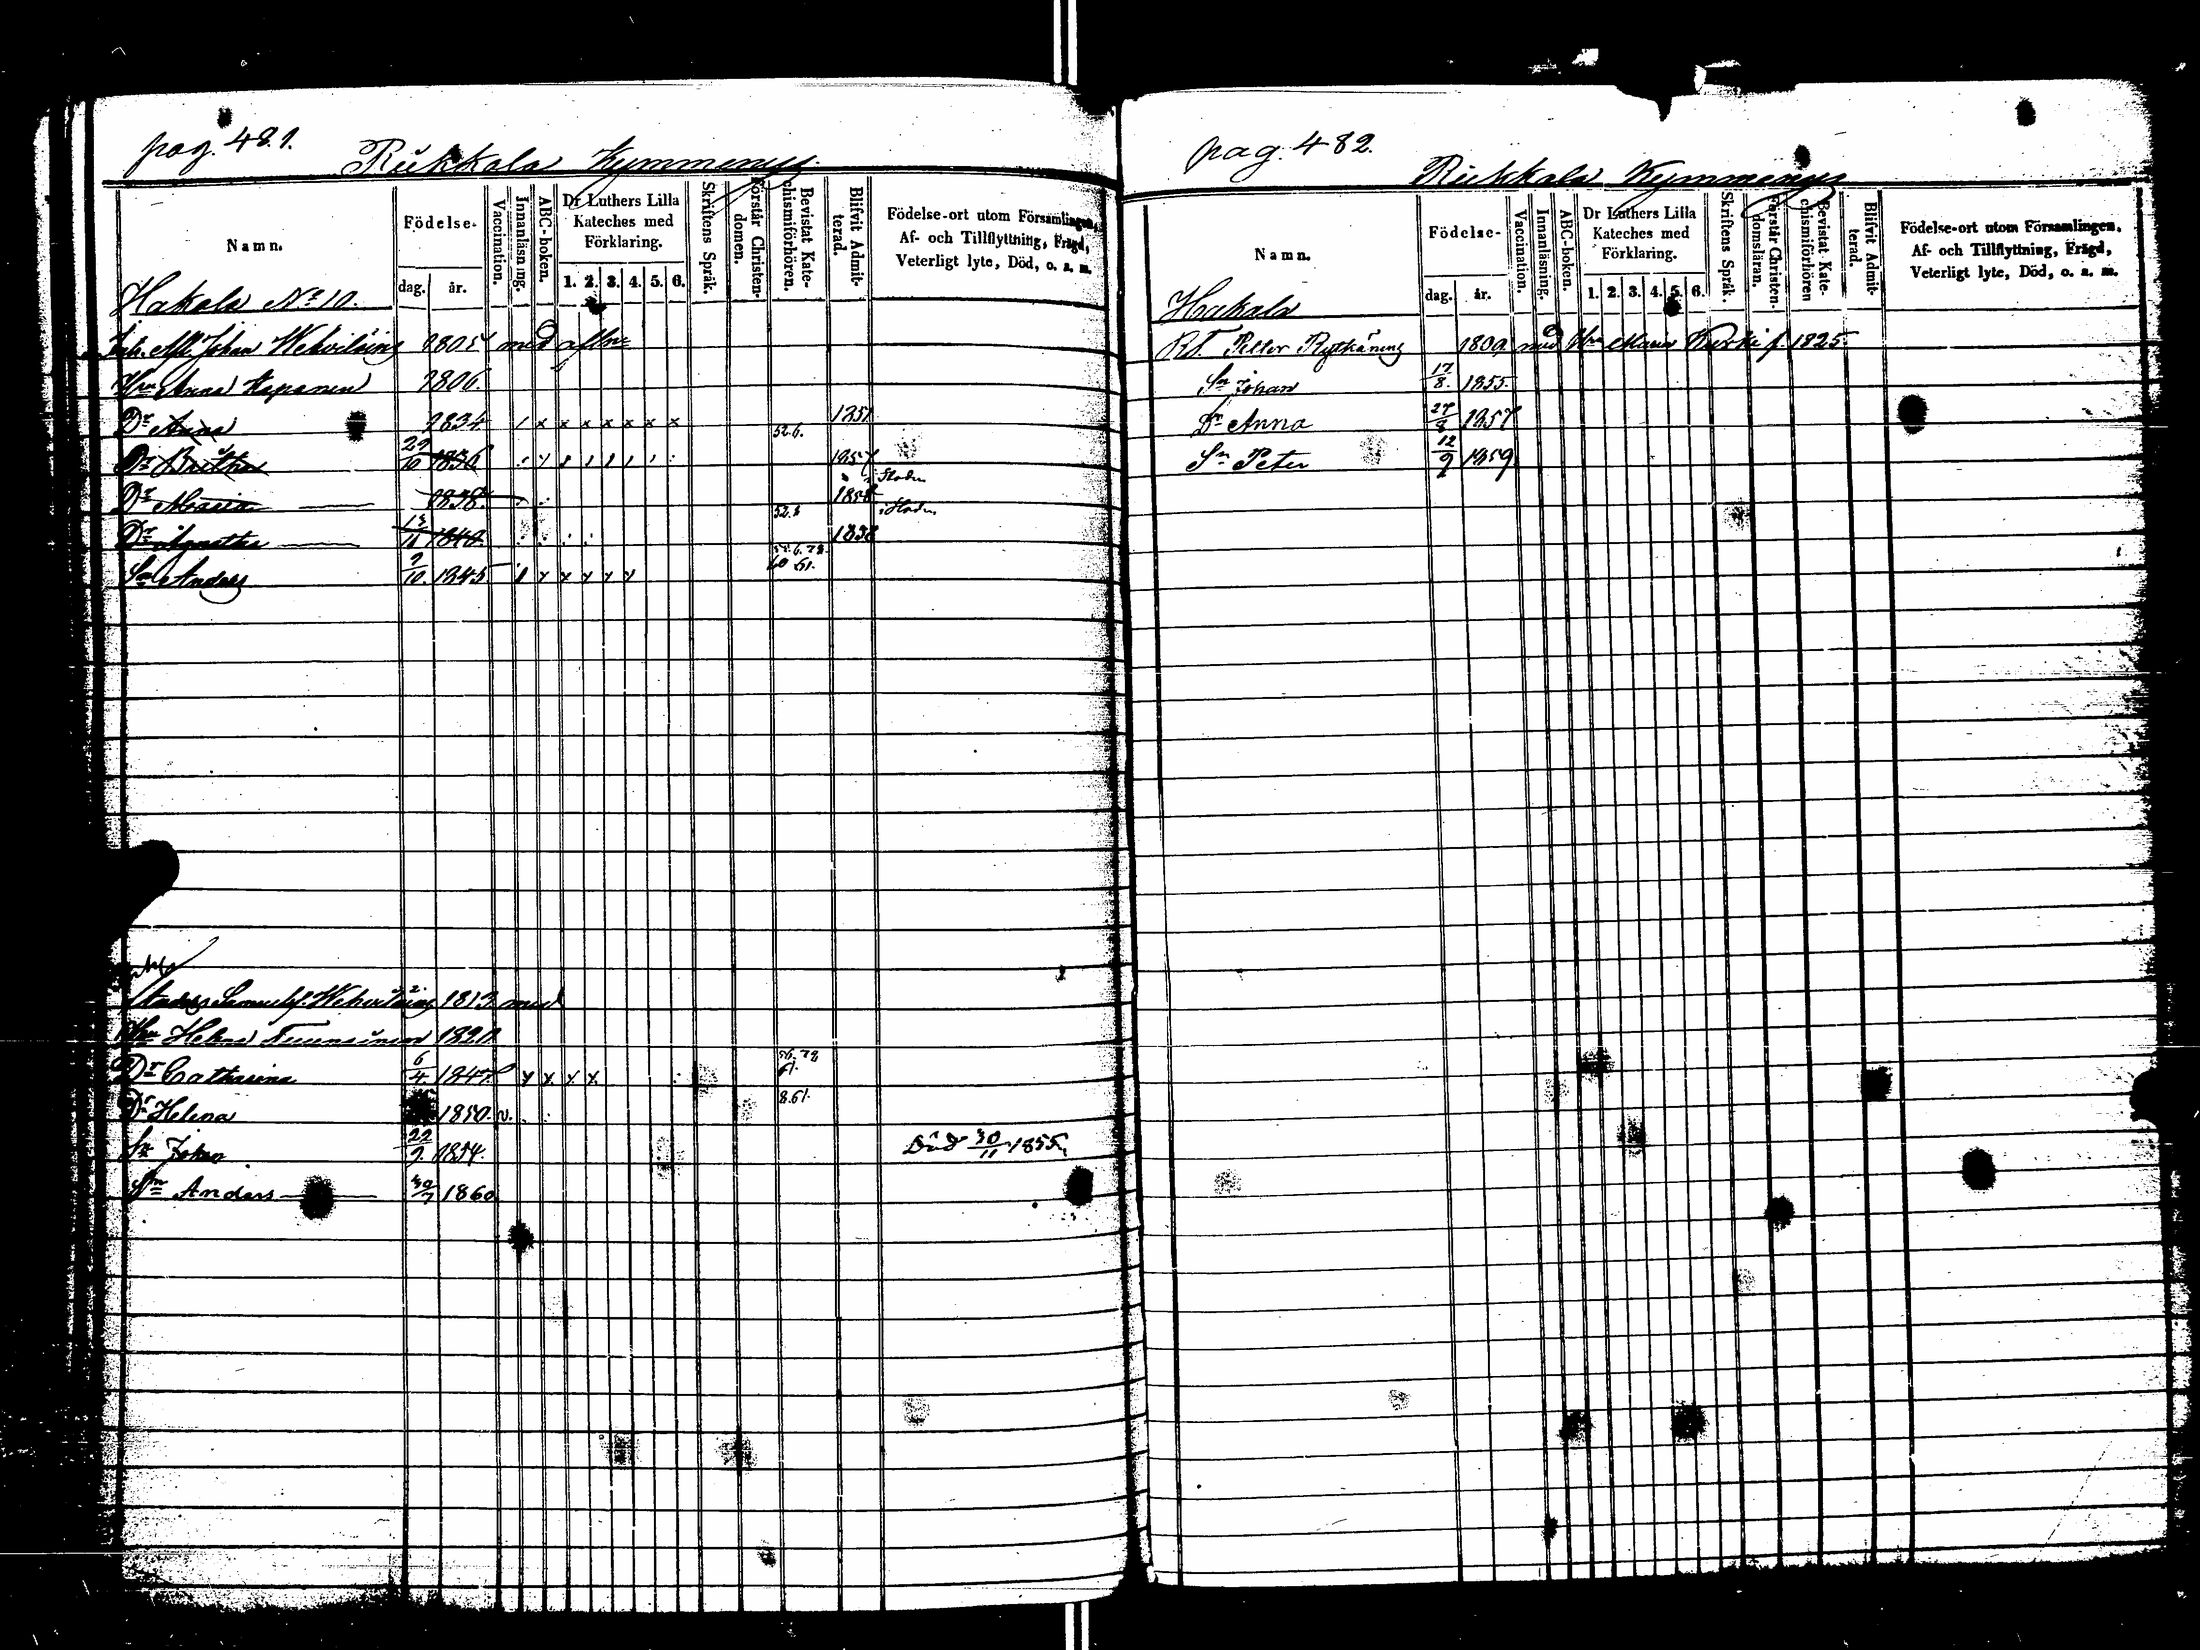 pag. 481.
Rukkala Kymmenys.
Namn.
Födelse-
dag. år.
Vaccination.
Innanläsning.
ABC-boken.
Dr Luthers Lilla
Kateches med
Förklaring.
1. 2. 3. 4. 5. 6.
Skriftens Språk.
Förstår Christen-
domen.
Bevistat Kate-
chismiförhören.
Blifvit Admit-
terad.
Födelse-ort utom Församlingen,
Af- och Tillflyttning, Frägd,
Veterligt lyte, Död, o. s. m.
Hakala No 10.
Johan 1805 med
Hu Anna Kaponen 1806.
Dr Anna 1834 / x x x x x x x 52.6. 1851
Dr Britha 29/10 1836 1857
Dr Maria 1838. 52.8 1858
Dr Agnetha 13/11 1840. 1858
Sn Anders 9/10. 1845 60 61.
Anders 1813 med
Hu Helena 1820
Dr Catharina 6/4. 1847 x x x x 56.78 61.
Dr Helena 1850. v. 8.61.
Sn Johan 22/9. 1854. Död 30/11 1855.
Sn Anders 30/7 1860
pag. 482.
Rukkala Kymmenys
Namn.
Födelse-
dag. år.
Vaccination.
Innanläsning.
ABC-boken.
Dr Luthers Lilla
Kateches med
Förklaring.
1. 2. 3. 4. 5. 6.
Skriftens Språk.
Förstår Christen-
domsläran.
Bevistat Kate-
chismiförhören
Blifvit Admit-
terad.
Födelse-ort utom Församlingen,
Af- och Tillflyttning, Frägd,
Veterligt lyte, Död, o. s. m.
Hakala
Petter Rytkäning 1809 med Hu Maria Kurki f. 1825
Sn Johan 17/8. 1855.
Dr Anna 27/8 1857
Sn Peter 12/9 1859